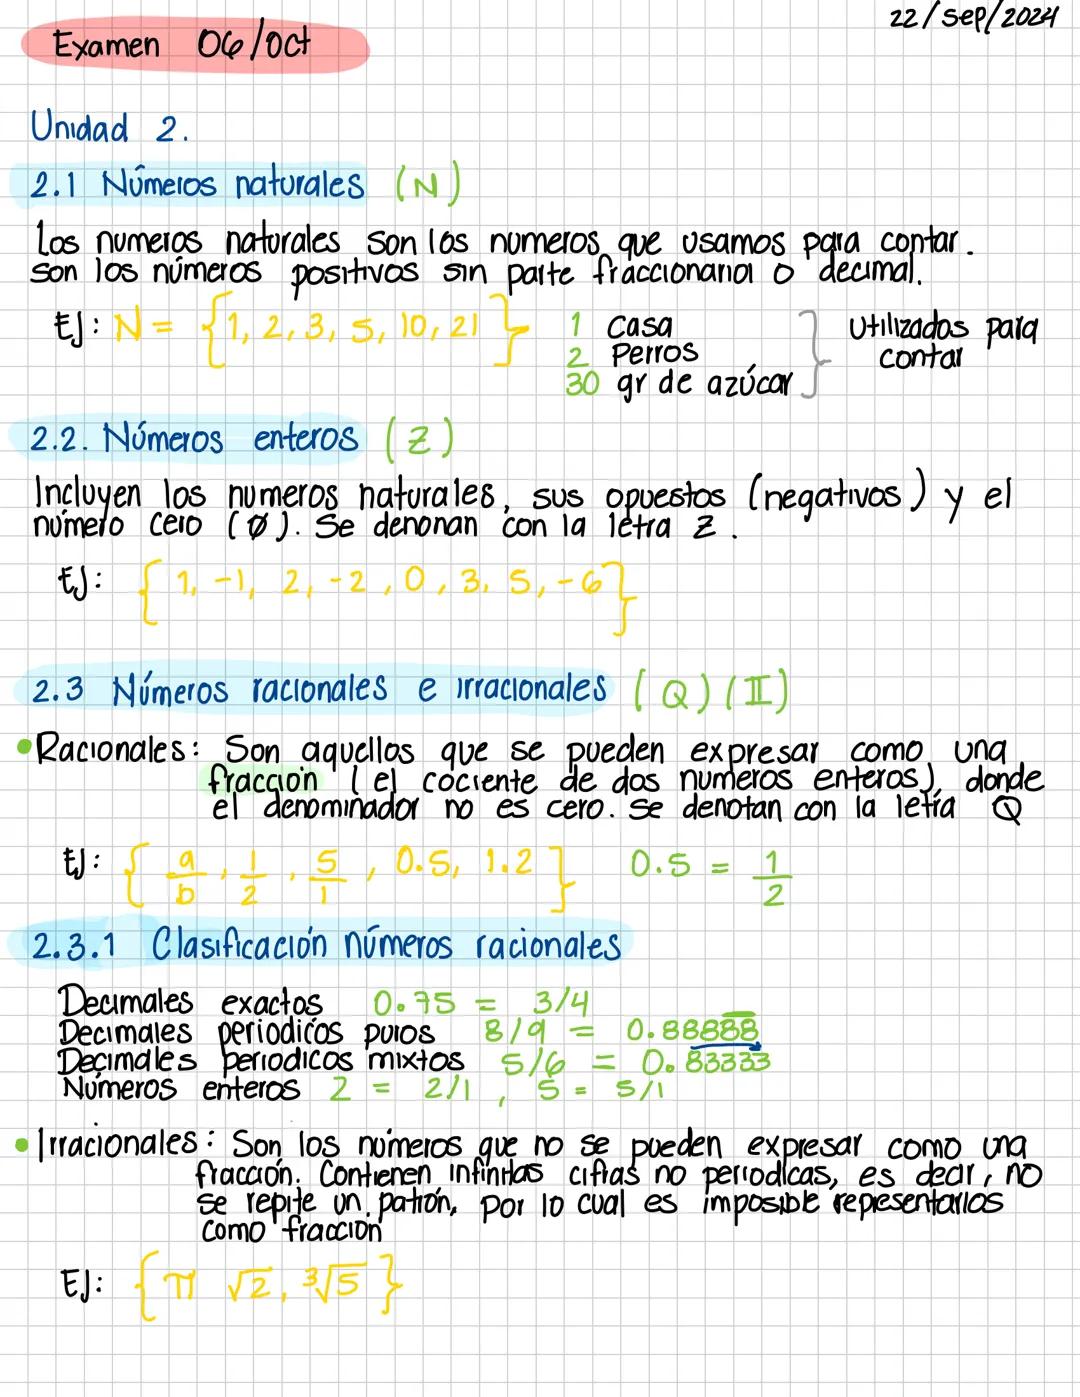 22/sep/2024
Examen 06/oct
Unidad 2.
2.1 Números naturales (N)
Los numeros naturales son los numeros que usamos para contar.
son los números positivos sin parte fraccionaria o decimal.
EJ: N = {1, 2, 3, 5, 10, 21}
1 casa
2 Perros
30 gr de azúcar
Utilizados para
contar
2.2. Números enteros (Z)
Incluyen los numeros naturales, sus opuestos (negativos) y el
número cero (Ø). Se denonan con la letra Z.
EJ: {1, -1, 2, -2, 0, 3, 5, -6}
2.3 Números racionales e irracionales (Q) (II)
• Racionales: Son aquellos que se pueden expresar como una
fraccion (el cociente de dos numeros enteros), donde
el denominador no es cero. se denotan con la letra Q
EJ: {a/b, 1/2, 5/1, 0.5, 1.2} 0.5 = 1/2
2.3.1 Clasificación números racionales
Decimales exactos 0.75 = 3/4
Decimales periodicos puros 8/9 = 0.88888
Decimales periodicos mixtos 5/6 = 0.83333
Números enteros 2 = 2/1, 5 = 5/1
• Irracionales: Son los números que no se pueden expresar como una
fracción. Contienen infinitas cifras no periodicas, es decir, no
se repite un patrón, por lo cual es imposible representarlos
como fraccion
EJ: {π √2, ³√5}